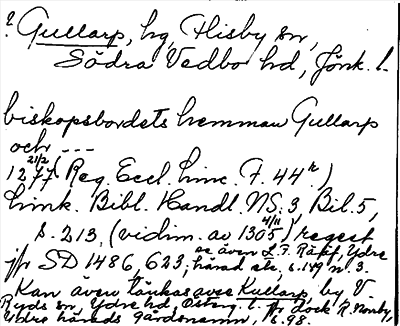 ? Gullarp, hg, Flisby sn,
Södra Vedbo hd, Jönk. l.
biskopsbordets hemman Gullarp
och ---
21/2
1277 (Reg. Eccl. Linc. F. 44 r)
Link. Bibl. Handl. NS. 3, Bil. 5,
4/11
s. 213. (vidim. av 1305) regest
se även L. F. Rääf, Ydre
jfr SD 1486, 623; härad etc. s. 149 n. 3.
Kan även tänkas avse Kullarp, by V.
Ryds sn, Ydre hd, Österg. l. jfr dock R. Norrby,
Ydre härads gårdsnamn, s. 98.